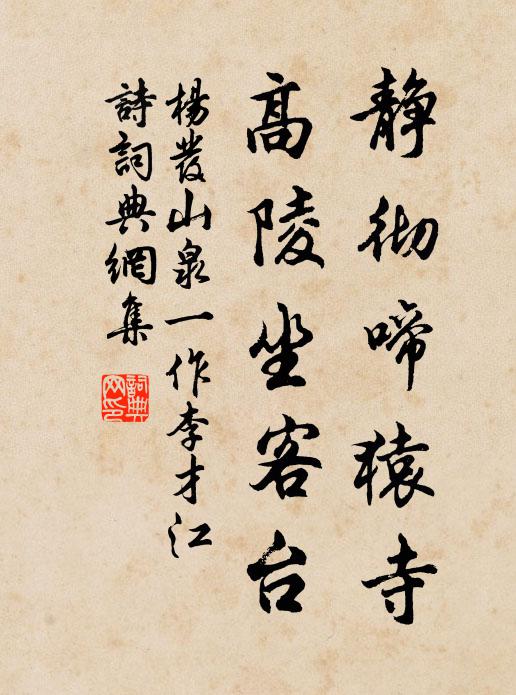 静彻啼猿寺
高陵坐客台
楊發山泉一作李才江
詩詞典網集
詞典网印